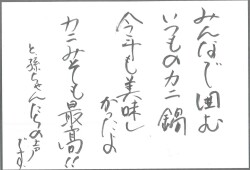 みんなで囲む
いつものカニ鍋
今年も美味し
かったよ
カニみそも最高!!
と孫ちゃんたちの声
です。